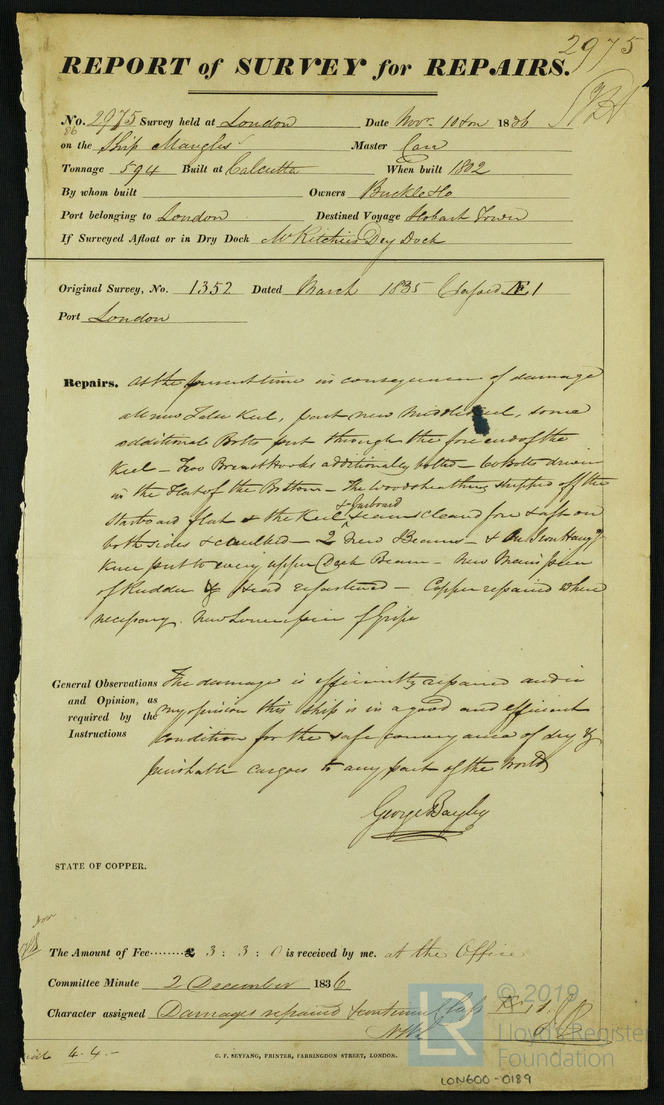 2975
REPORT of SURVEY for REPAIRS.
No. 2975 Survey held at London Date Novr. 10 1836
86
on the Ship Mangles Master Carr
Tonnage 594 Built at Calcutta When built 1802
By whom built Owners Buckle & Co
Port belonging to London Destined Voyage Hobart Town
If Surveyed Afloat or in Dry Dock McRitchies Dry Dock
Original Survey, No. 1352 Dated March 1835 Classed Æ 1
Port London
Repairs. At the present time in consequence of damage
all new False Keel, part new Middle Keel, some
additional Bolts put through the fore end of the
Keel - Two Breast Hooks additionally bolted - 60 Bolts driven
in the Flat of the Bottom - The Woodsheathing stripped off the
& Garboard
Starboard flat & the Keel seams cleaned fore & aft on
both sides & caulked - 2 New Beams - & One Iron Hangg
Knee put to every upper Deck Beam - New Main piece
of Rudder & Head refastened - Copper repaired where
necessary. New Lower piece of Gripe
General Observations and Opinion, as required by the Instructions
The damage is efficiently repaired and in
my opinion this ship is in a good and efficient
condition for the safe conveyance of dry &
perishable cargoes to any part of the World
George Bayley
STATE OF COPPER.
The Amount of Fee........£ 3 : 3 : 0 is received by me. at the Office
Committee Minute 2 December 1836
Character assigned Damages repaired & continued Class Æ 1
4.4.-
C. F. SEYFANG, PRINTER, FARRINGDON STREET, LONDON.
LON600-0189
LR
© 2019
Lloyd's Register
Foundation